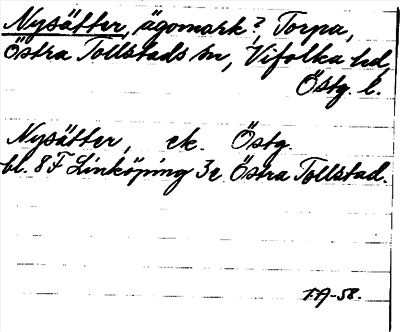 Nysätter, ägomark?, Torpa,
Östra Tollstads sn, Vifolka hd,
Östg. l.
Nysätter, ek. Östg.
bl. 8F Linköping 3e Östra Tollstad.
TA-58.